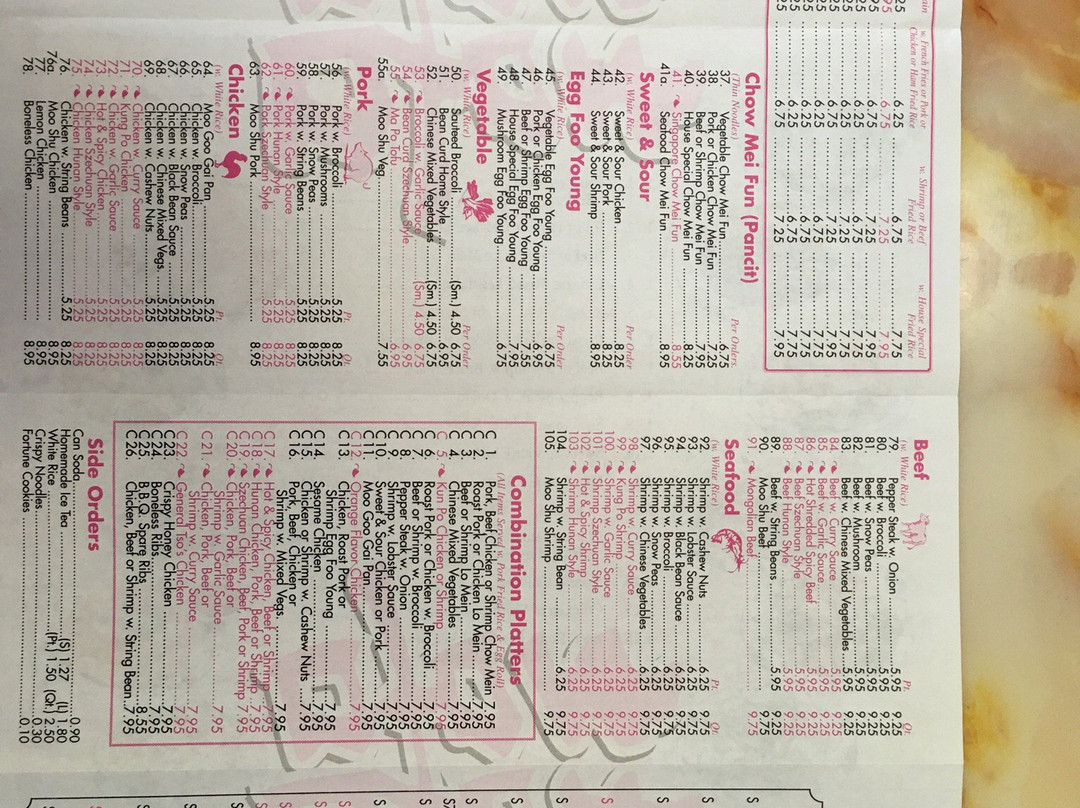 ain
w. French Fries or Pork or
Chicken or Ham Fried Rice
w. Shrimp or Beef
Fried Rice
w. House Special
Fried Rice
25 6.25
95 6.75 7.25 7.95
25 6.75 7.25 7.95
Chow Mei Fun (Pancit)
(Thin Noodles) Per Orders
37. Vegetable Chow Mei Fun 6.75
38. Pork or Chicken Chow Mei Fun
39. Beef or Shrimp Chow Mei Fun
40. House Special Chow Mei Fun 8.25
41. Singapore Chow Mei Fun 8.55
41a. Seafood Chow Mei Fun 8.95
Sweet & Sour
(w. White Rice) Per Order
42. Sweet & Sour Chicken 8.25
43. Sweet & Sour Pork 8.25
44. Sweet & Sour Shrimp 8.95
Egg Foo Young
(w. White Rice) Per Order
45. Vegetable Egg Foo Young 6.75
46. Pork or Chicken Egg Foo Young 6.95
47. Beef or Shrimp Egg Foo Young 7.55
48. House Special Egg Foo Young 7.95
49. Mushroom Egg Foo Young 6.75
Vegetable
(w. White Rice) Per Order
50. Sauteed Broccoli (Sm.) 4.50 6.75
51. Bean Curd Home Style 6.95
52. Chinese Mixed Vegetables (Sm.) 4.50 6.95
53. Broccoli w. Garlic Sauce (Sm.) 4.50 6.75
54. Bean Curd Szechuan Style 6.95
55. Ma Po Tofu 6.95
55a. Moo Shu Veg. 7.55
Pork
(w. White Rice) Pt. Qt.
56. Pork w. Broccoli 5.25 8.25
57. Pork w. Mushrooms 5.25 8.25
58. Pork w. Snow Peas 5.25 8.25
59. Pork w. String Beans 5.25 8.25
60. Pork w. Garlic Sauce 5.25 8.25
61. Pork Hunan Style 5.25 8.25
62. Pork Szechuan Style 5.25 8.25
63. Moo Shu Pork 8.95
Chicken
(w. White Rice) Pt. Qt.
64. Moo Goo Gai Pan 5.25 8.25
65. Chicken w. Broccoli 5.25 8.25
66. Chicken w. Snow Peas 5.25 8.25
67. Chicken w. Black Bean Sauce 5.25 8.25
68. Chicken w. Chinese Mixed Vegs. 5.25 8.25
69. Chicken w. Cashew Nuts 5.25 8.25
70. Chicken w. Curry Sauce 5.25 8.25
71. Kung Po Chicken 5.25 8.25
72. Chicken w. Garlic Sauce 5.25 8.25
73. Hot & Spicy Chicken 5.25 8.25
74. Chicken Szechuan Style 5.25 8.25
75. Chicken Hunan Style 5.25 8.25
76. Chicken w. String Beans 5.25 8.25
76a. Moo Shu Chicken 8.95
77. Lemon Chicken 8.95
78. Boneless Chicken 8.95
Beef
(w. White Rice) Pt. Qt.
79. Pepper Steak w. Onion 5.95 9.25
80. Beef w. Broccoli 5.95 9.25
81. Beef w. Snow Peas 5.95 9.25
82. Beef w. Mushroom 5.95 9.25
83. Beef w. Chinese Mixed Vegetables 5.95 9.25
84. Beef w. Curry Sauce 5.95 9.25
85. Beef w. Garlic Sauce 5.95 9.25
86. Hot Shredded Spicy Beef 5.95 9.25
87. Beef Szechuan Style 5.95 9.25
88. Beef Hunan Style 5.95 9.25
89. Beef w. String Beans 5.95 9.25
90. Moo Shu Beef 9.75
91. Mongolian Beef 9.75
Seafood
(w. White Rice) Pt. Qt.
92. Shrimp w. Cashew Nuts 6.25 9.75
93. Shrimp w. Lobster Sauce 6.25 9.75
94. Shrimp w. Black Bean Sauce 6.25 9.75
95. Shrimp w. Broccoli 6.25 9.75
96. Shrimp w. Snow Peas 6.25 9.75
97. Shrimp w. Chinese Vegetables 6.25 9.75
98. Shrimp w. Curry Sauce 6.25 9.75
99. Kung Po Shrimp 6.25 9.75
100. Shrimp w. Garlic Sauce 6.25 9.75
101. Shrimp Szechuan Style 6.25 9.75
102. Hot & Spicy Shrimp 6.25 9.75
103. Shrimp Hunan Style 6.25 9.75
104. Shrimp w. String Bean 6.25 9.75
105. Moo Shu Shrimp 9.75
Combination Platters
(All Items Served w. Pork Fried Rice & Egg Roll)
C 1. Pork, Beef, Chicken or Shrimp Chow Mein 7.95
C 2. Roast Pork or Chicken Lo Mein 7.95
C 3. Beef or Shrimp Lo Mein 7.95
C 4. Chinese Mixed Vegetables 7.95
C 5. Kun Po Chicken or Shrimp 7.95
C 6. Roast Pork or Chicken w. Broccoli 7.95
C 7. Beef or Shrimp w. Broccoli 7.95
C 8. Pepper Steak w. Onion 7.95
C 9. Shrimp w. Lobster Sauce 7.95
C10. Sweet & Sour Chicken or Pork 7.95
C11. Moo Goo Gai Pan 7.95
C12. Orange Flavor Chicken 7.95
C13. Chicken, Roast Pork or
Shrimp Egg Foo Young 7.95
C14. Sesame Chicken 7.95
C15. Chicken or Shrimp w. Cashew Nuts 7.95
C16. Pork, Beef, Chicken or
Shrimp w. Mixed Vegs. 7.95
C17. Hot & Spicy Chicken, Beef or Shrimp 7.95
C18. Hunan Chicken, Pork, Beef or Shrimp 7.95
C19. Szechuan Chicken, Beef, Pork or Shrimp 7.95
C20. Chicken, Pork, Beef or
Shrimp w. Garlic Sauce 7.95
C21. Chicken, Pork, Beef or
Shrimp w. Curry Sauce 7.95
C22. General Tso's Chicken 7.95
C23. Crispy Honey Chicken 7.95
C24. Boneless Ribs 7.95
C25. B.B.Q. Spare Ribs 8.55
C26. Chicken, Beef or Shrimp w. String Bean 7.95
Side Orders
Can Soda 0.90
Homemade Ice Tea (S) 1.27 (L) 1.80
White Rice (Pt.) 1.50 (Qt.) 2.50
Crispy Noodles 0.30
Fortune Cookies 0.10